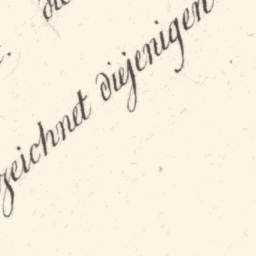 die
zeichnet diejenigen